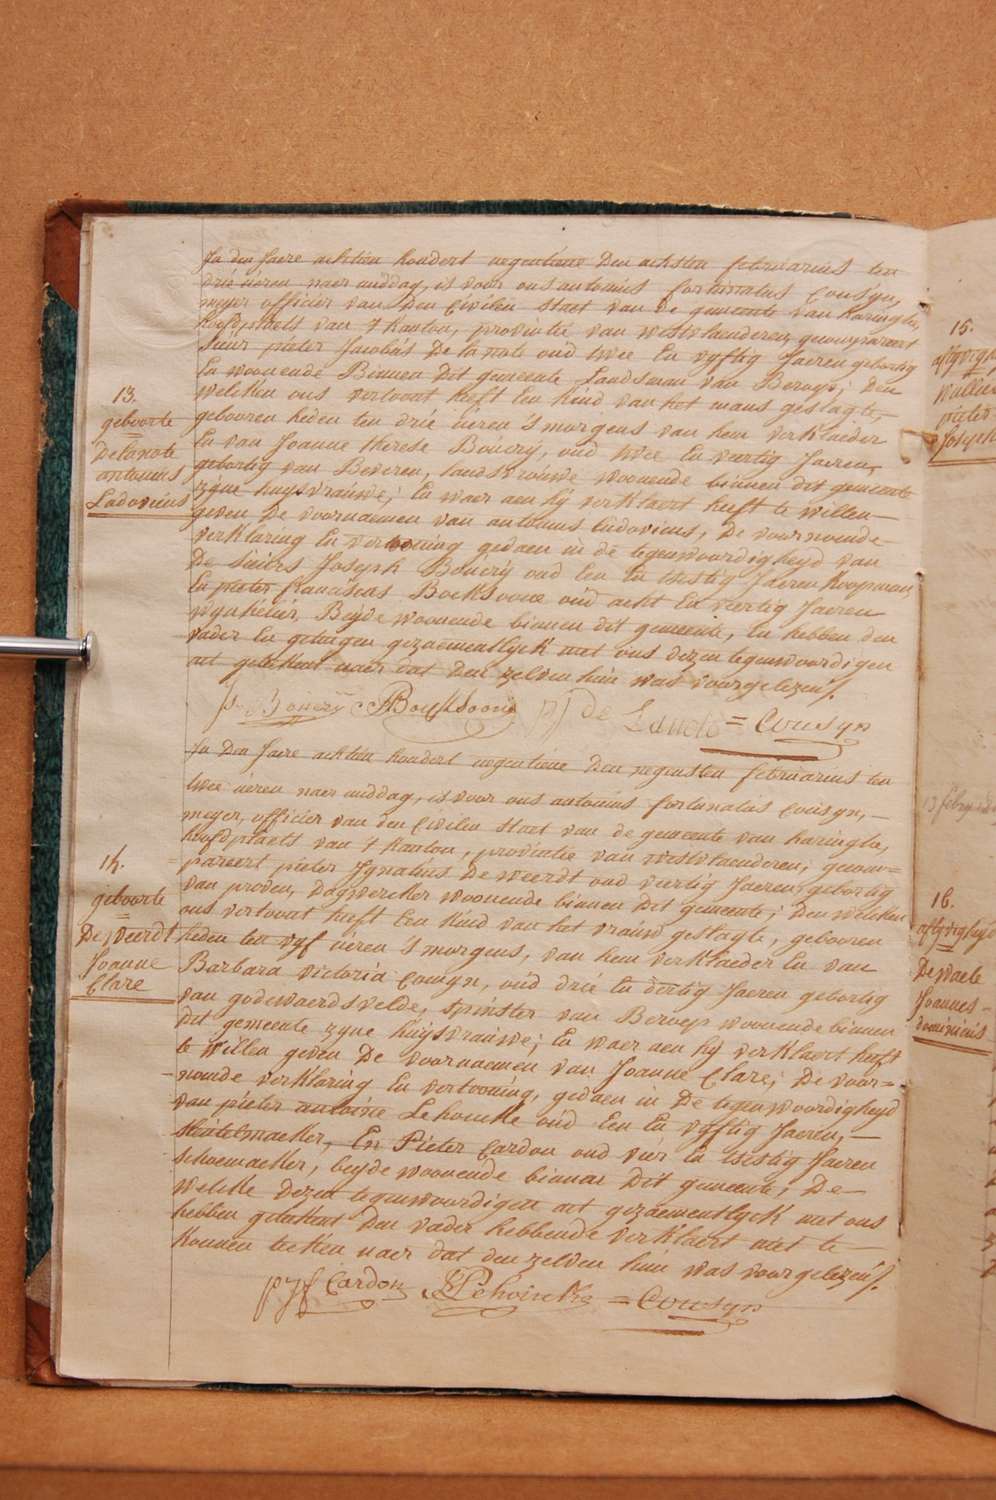 13.
geboorte
Delanote
antonius
Ludovicus
In den Jaere achtien hondert negentiene den achsten februarius ten
drie ueren naer middag, is voor ons antonius fortunatus Cousyn,
meyer officier van den Civilen staet van de gemeente van haringhe,
hoofdplaets van 't kanton, provintie van westvlaenderen, gecompareert
Sieur pieter Jacobus Delanote oud twee en vyftig Jaeren gebortig
en woonende Binnen dit gemeente Landsman van Beroep; den
welcken ons vertoont heeft een kind van het mans geslagte,
gebooren heden ten drie ueren 's morgens van hem verklaeder
en van Joanne therese Bouery, oud twee en veertig Jaeren,
gebortig van Beveren, landsvrouwe woonende binnen dit gemeente
zyne huysvrauwe; en waer aen hy verklaert heeft te willen
geven de voornaemen van antonius ludovicus, de voornoemde
verklaring en vertooning gedaen in de tegenwoordigheyd van
De Sieurs Joseph Bouery oud een en tsestig Jaeren koopman
en pieter franciscus Boeksoone oud acht en veertig Jaeren
wynkelier, Beyde woonende binnen dit gemeente, en hebben den
vader en getuigen gezaementlyck met ons dezen tegenwoordigen
act geteekent naer dat den zelven hun was voorgelezen
Bouery PBouksoone pj de Lanote = Cousyn
14.
geboorte
De weerdt
Joanne
Clare
In den Jaere achtien hondert negentiene den negensten februarius ten
twee ueren naer middag, is voor ons antonius fortunatus Cousyn,
meyer, officier van den Civilen staet van de gemeente van haringhe,
hoofdplaets van 't kanton, provintie van westvlaenderen; gecom=
pareert pieter Jgnatius De weerdt oud viertig Jaeren, gebortig
van proven, Dagwercker woonende binnen dit gemeente; den welcken
ons vertoont heeft een kind van het vrauw geslagte, gebooren
heden ten vyf ueren 's morgens, van hem verklaeder en van
Barbara victoria Comyn, oud drie en dertig Jaeren gebortig
van godewaerdsvelde, spinster van Beroep woonende binnen
dit gemeente zyne huysvrauwe; en waer aen hy verklaert heeft
te willen geven De voornaemen van Joanne Clare; De voor=
noemde verklaring en vertooning, gedaen in De tegenwoordigheyd
van pieter antoine Lehoucke oud een en vyftig Jaeren,
sleutelmaeker, En Pieter Cardon oud vier en tsestig Jaeren
schoemaeker, beyde woonende binnen Dit gemeente; De
welcke dezen tegenwoordigen act gezaementlyck met ons
hebben geteekent den vader hebbende verklaert niet te
konnen teeken naer dat den zelven hun was voorgelezen
pjf Cardon Lehoucke = Cousyn
15.
pieter
Joseph
16.
Dewaele
Joannes
dominicus